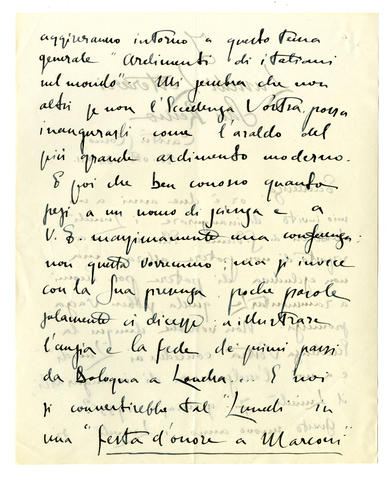 aggireranno intorno a questo tema
generale "Ardimenti di italiani
nel mondo" Mi sembra che non
altri se non l'Eccellenza Vostra possa
inaugurarli come l'araldo del
più grande ardimento moderno.
E poi che ben conosco quanto
pesi a un uomo di scienza e a
V. E. massimamente una conferenza:
non questa vorremmo; ma se invece
con la Sua presenza poche parole
solamente ci dicesse a illustrare
l'ansia e la fede dei primi passi
da Bologna a Londra... E noi
si convertirebbe tal "Lunedì" in
una "festa d'onore a Marconi"